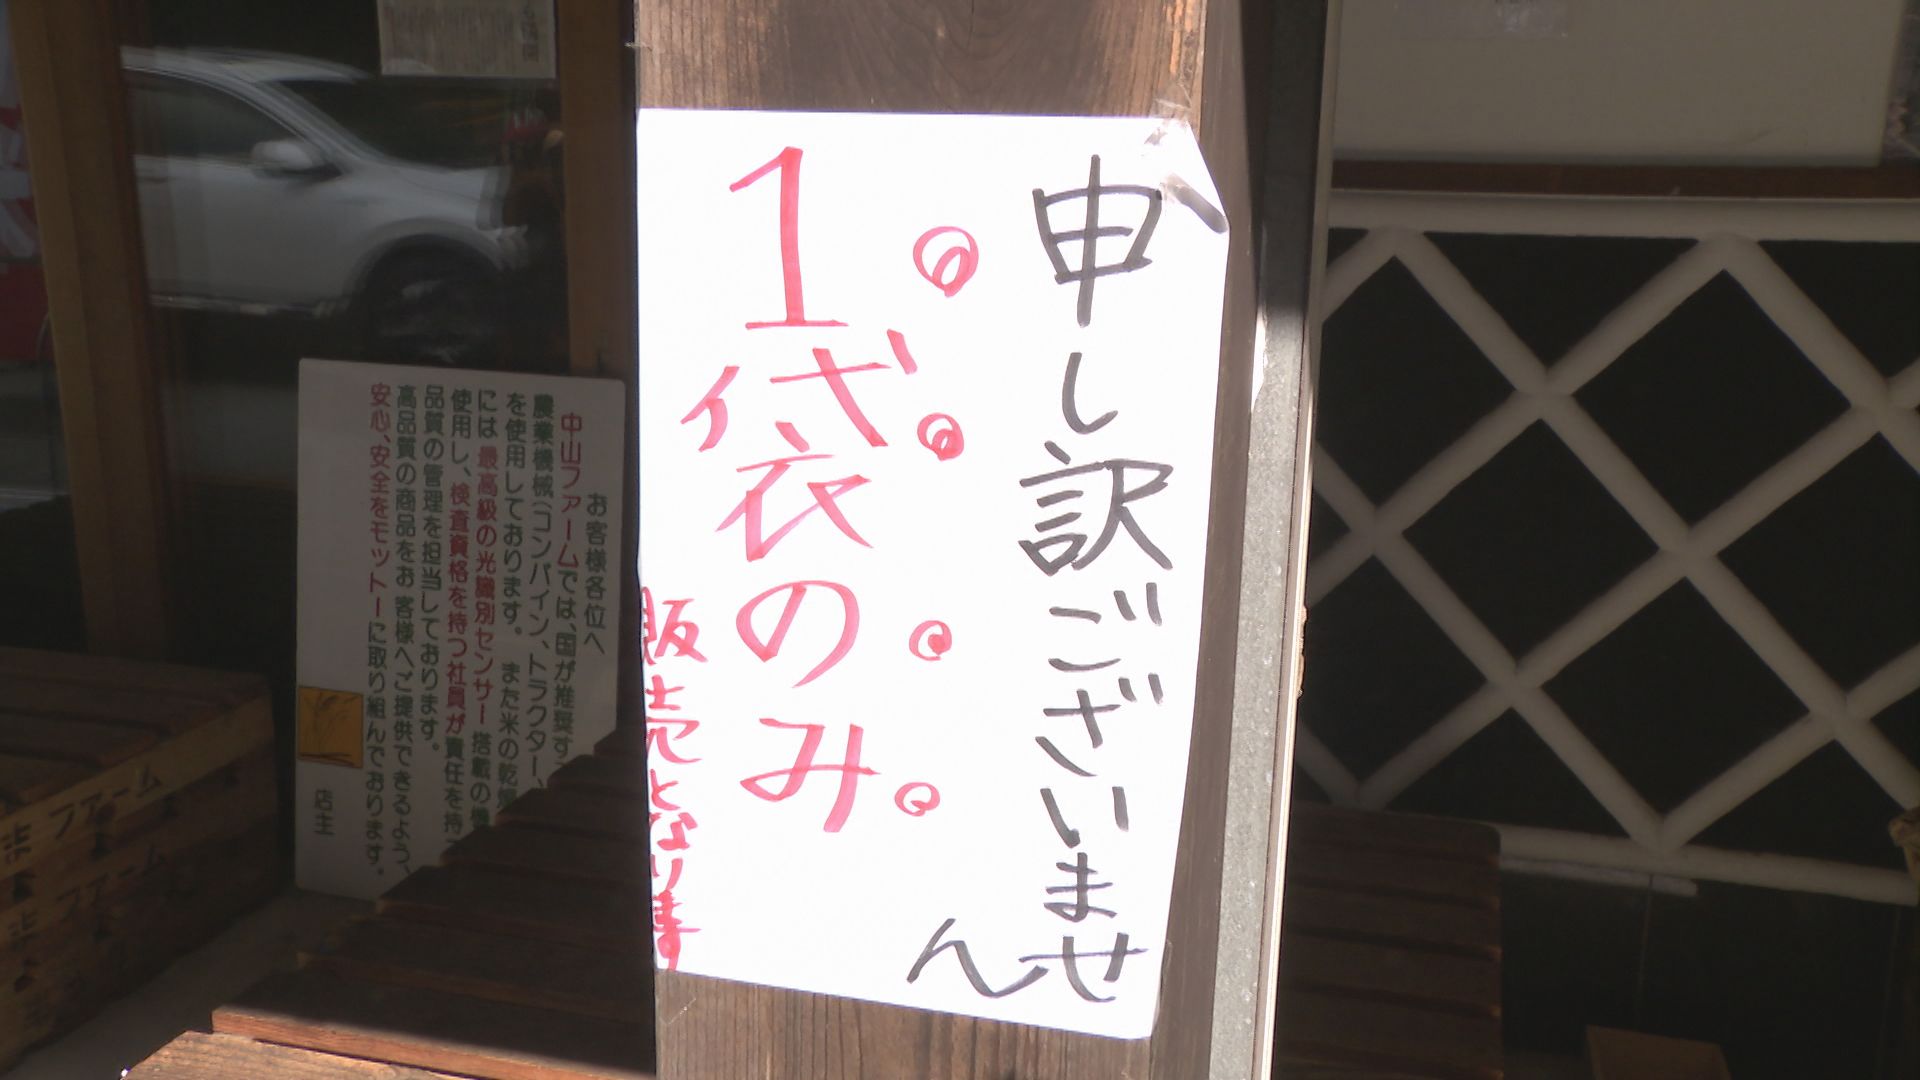 申し訳ございません
1袋のみ
販売となります
お客様各位へ
中山ファームでは、国が推奨す
農業機械(コンバイン、トラクター、
を使用しております。また米の乾燥
には最高級の光識別センサー搭載の機
使用し、検査資格を持つ社員が責任を持っ
品質の管理を担当しております。
高品質の商品をお客様へご提供できるよう、
安心、安全をモットーに取り組んでおります。
店主
ファーム
ファーム